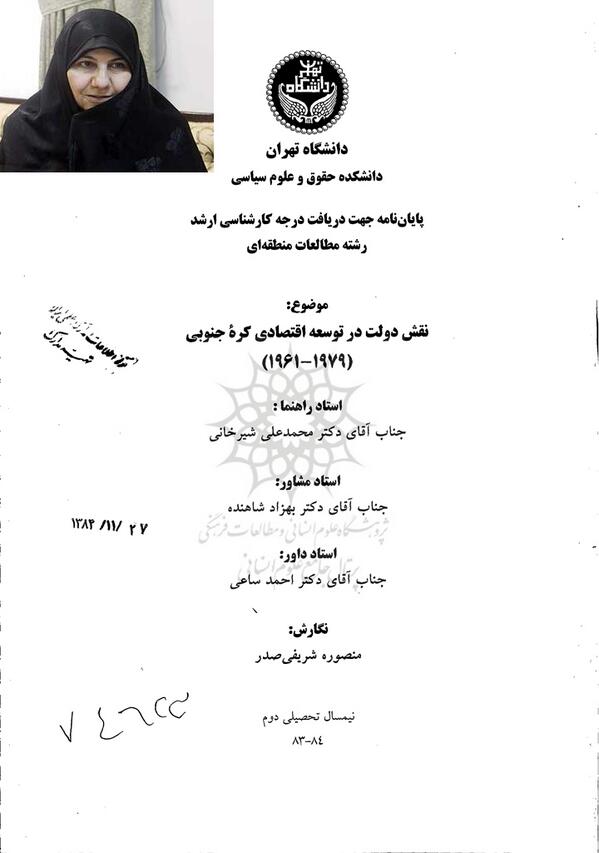 دانشگاه تهران
دانشکده حقوق و علوم سیاسی
پایان‌نامه جهت دریافت درجه کارشناسی ارشد
رشته مطالعات منطقه‌ای
موضوع:
نقش دولت در توسعه اقتصادی کرهٔ جنوبی
(۱۹۶۱-۱۹۷۹)
استاد راهنما :
جناب آقای دکتر محمدعلی شیرخانی
استاد مشاور:
جناب آقای دکتر بهزاد شاهنده
پژوهشگاه علوم انسانی و مطالعات فرهنگی
۱۳۸۴ /۱۱/ ۲۷
استاد داور:
پرتال جامع علوم انسانی
جناب آقای دکتر احمد ساعی
نگارش:
منصوره شریفی‌صدر
نیمسال تحصیلی دوم
۸۳-۸۴